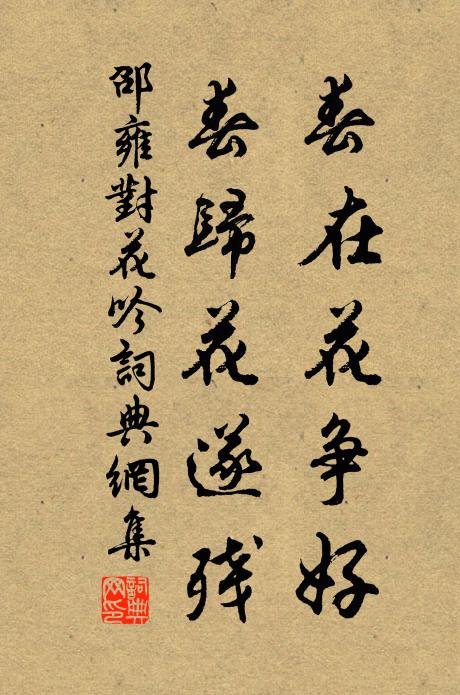 春在花争好
春歸花遂残
邵雍對花吟詞典網集
詞典网印